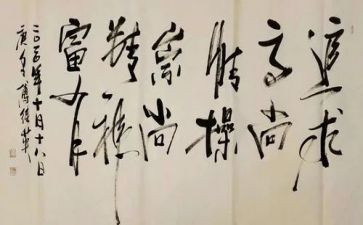 追求
高尚
情操
崇尚
精神
富有
二〇二〇年十月十八日
庚子